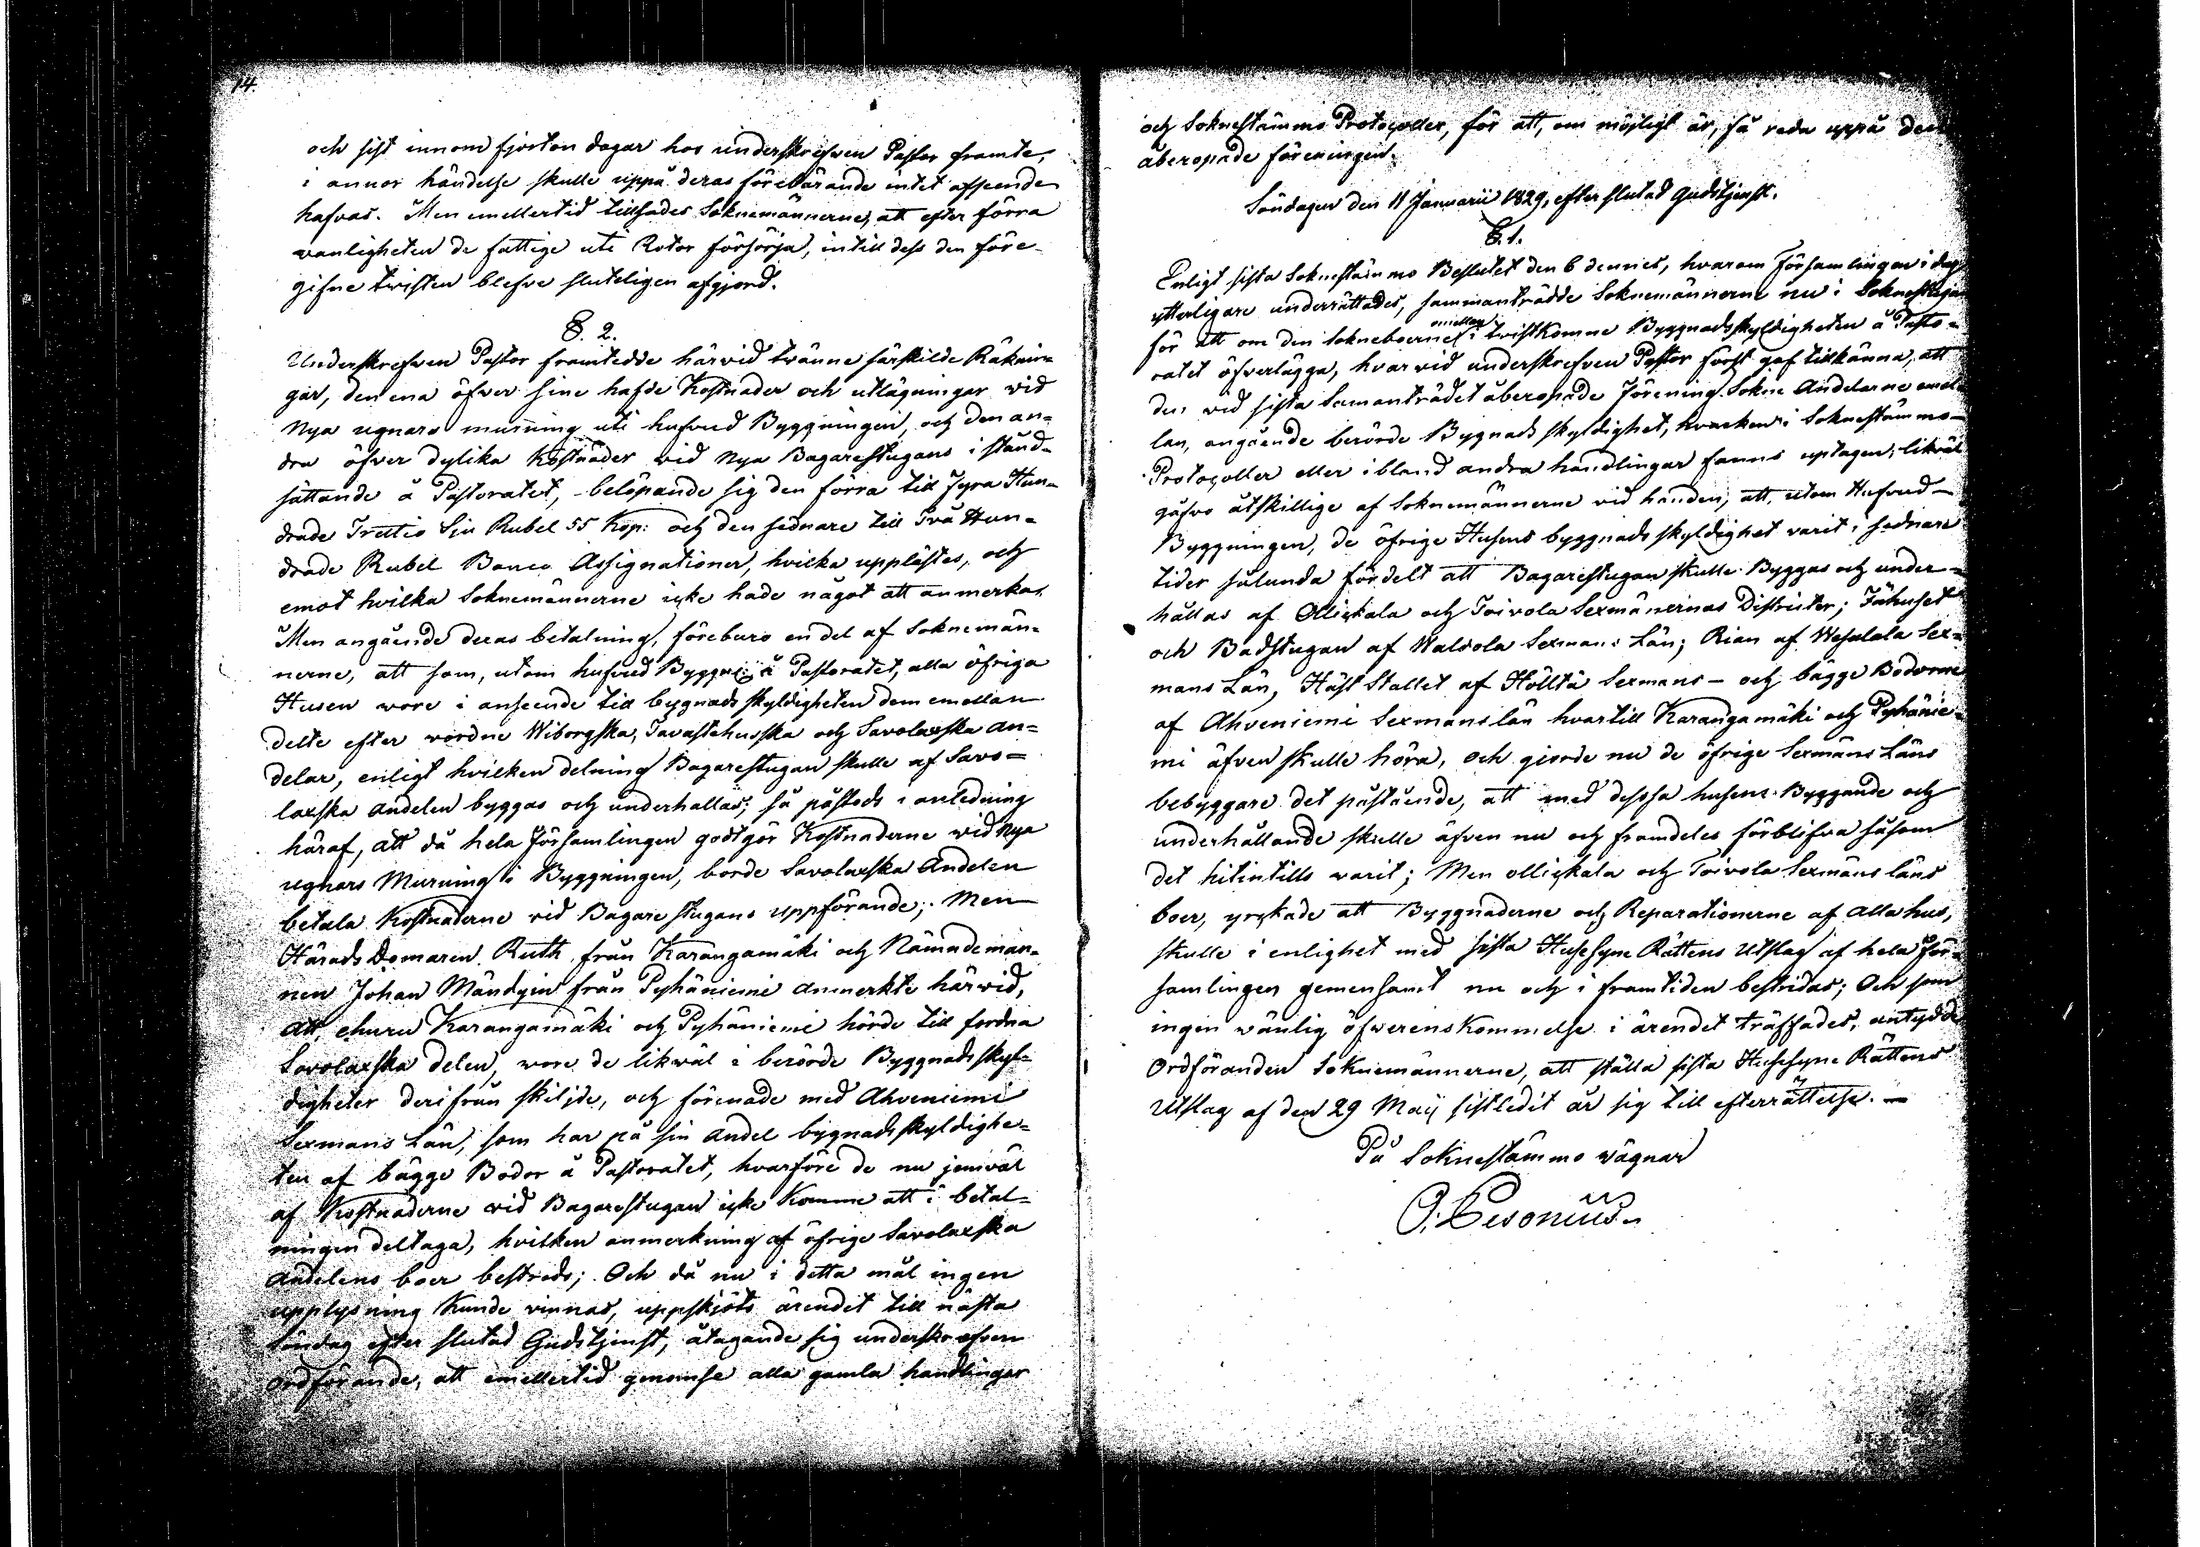 14.
och sist innom fjorton dagar hos underskrefwen Pastor framte,
i annor händelse skulle uppå deras förebärande intet afseende
hafvas. Men emellertid tillsades Soknemännerne, att efter förra
wanligheten de fattige uti Rotor försörja, intill dess den före-
gifne twisten blefve sluteligen afgjord.
§. 2.
Underskrefwen Pastor framtedde härwid twänne särskilde Räknin-
gar, den ena öfver sine hafde Kostnader och utlägningar wid
Nya ugnars murning uti hufvud Byggningen, och den an-
dra öfver dylika Kostnader wid nya Bagarestugans i stånd-
sättande å Pastoratet, - belöpande sig den förra till Fyra Hun-
drade Trettio Sju Rubel 55 Kop: och den sednare till Två Hun-
drade Rubel Banco Assignationer, hvilka upplästes, och
emot hvilka Soknemännerne icke hade något att anmerka.
Men angående deras betalning, föreburo en del af Soknemän-
nerne, att som, utom hufvud Byggn: å Pastoratet, alla öfriga
Husen wore i anseende till bygnads skyldigheten dem emellan
delte efter wordne Wiborgska, Tavastehusska och Savolaxska an-
delar, enligt hvilken delning Bagarestugan skulle af Savo-
laxska andelen byggas och underhållas; så påstods i anledning
häraf, att då hela Församlingen godtgör Kostnaderne wid Nya
ugnars Murning i Byggningen, borde Savolaxska Andelen
betala Kostnaderne wid Bagare stugans uppförande; Men
Härads Domaren Ruth från Karangamäki och Nämndeman-
nen Johan Mändyin från Pyhäniemi anmerkte härwid,
att, ehuru Karangamäki och Pyhäniemi hörde till fordna
Savolaxska delen, wore de likwäl i berörde Byggnads skyl-
digheter derifrån skiljde, och förenade med Ahveniemi
Sexmans Län, som har på sin andel bygnads skyldighe-
ten af bägge Bodor å Pastoratet, hvarföre de nu jemväl
af Kostnaderne wid Bagarestugan icke Komme att i betal-
ningen deltaga, hvilken anmerkning af öfrige Savolaxska
andelens boer bestreds; Och då nu i detta mål ingen
upplysning Kunde vinnas, uppskjöts ärendet till nästa
Söndag efter slutad Gudstjenst, åtagande sig underskrefven
Ordförande, att emellertid genomse alla gamla handlingar
och Soknestämmo Protocoller, för att, om möjligt är, få reda uppå den
åberopade föreningen.
Söndagen den 11 Januarii 1829, efter slutad Gudstjenst.
§. 1.
Enligt sista Soknestämmo Beslutet den 6 dennes, hvarom Församlingen i dag
ytterligare underrättades, sammanträdde Soknemännerne nu i Soknestugan
för att om den Sokneboerne emellan i twist Komne Byggnads skyldigheten å Pasto-
ratet öfverlägga, hvarwid underskrefven Pastor först gaf tillkänna, att
den wid sista Samanträdet åberopade Förening Sokne Andelarne emel-
lan, angående berörde Bygnads skyldighet, hwarken i Soknestämmo-
Protocoller eller ibland andra handlingar fanns uptagen; likväl
gåfvo åtskillige af Soknemännerne vid handen, att, utom Hufvud-
Byggningen, de öfrige Husens byggnads skyldighet varit i sednare
tider sålunda fördelt att Bagarestugan skulle Byggas och under-
hållas af Ollickala och Toivola Sexmänernas Districter; Fähuset
och Badstugan af Walvola Sexmans Län; Rian af Wesalala Sex-
mans Län, Häst Stallet af Hölltä Sexmans - och bägge Bodorne
af Ahveniemi Sexmanslän hvartill Karangamäki och Pyhänie-
mi äfven skulle höra, och gjorde nu de öfrige Sexmäns Läns
bebyggare det påstående, att med dessa husens Byggande och
underhållande skulle äfven nu och framdeles förblifva såsom
det hitintills varit; Men ollickala och Toivola Sexmäns läns
boer, yrckade att Byggnaderne och Reparationerne af alla hus,
skulle i enlighet med sista Husesyne Rättens Utslag af hela För-
samlingen gemensamt nu och i framtiden bestridas; Och som
ingen wänlig öfwerenskommelse i ärendet träffades, antydde
Ordföranden Soknemännerne, att ställa sista Husesyne Rättens
Utslag af den 29 Maij sistledit år sig till efterrättelse. —
På Soknestämmo wägnar